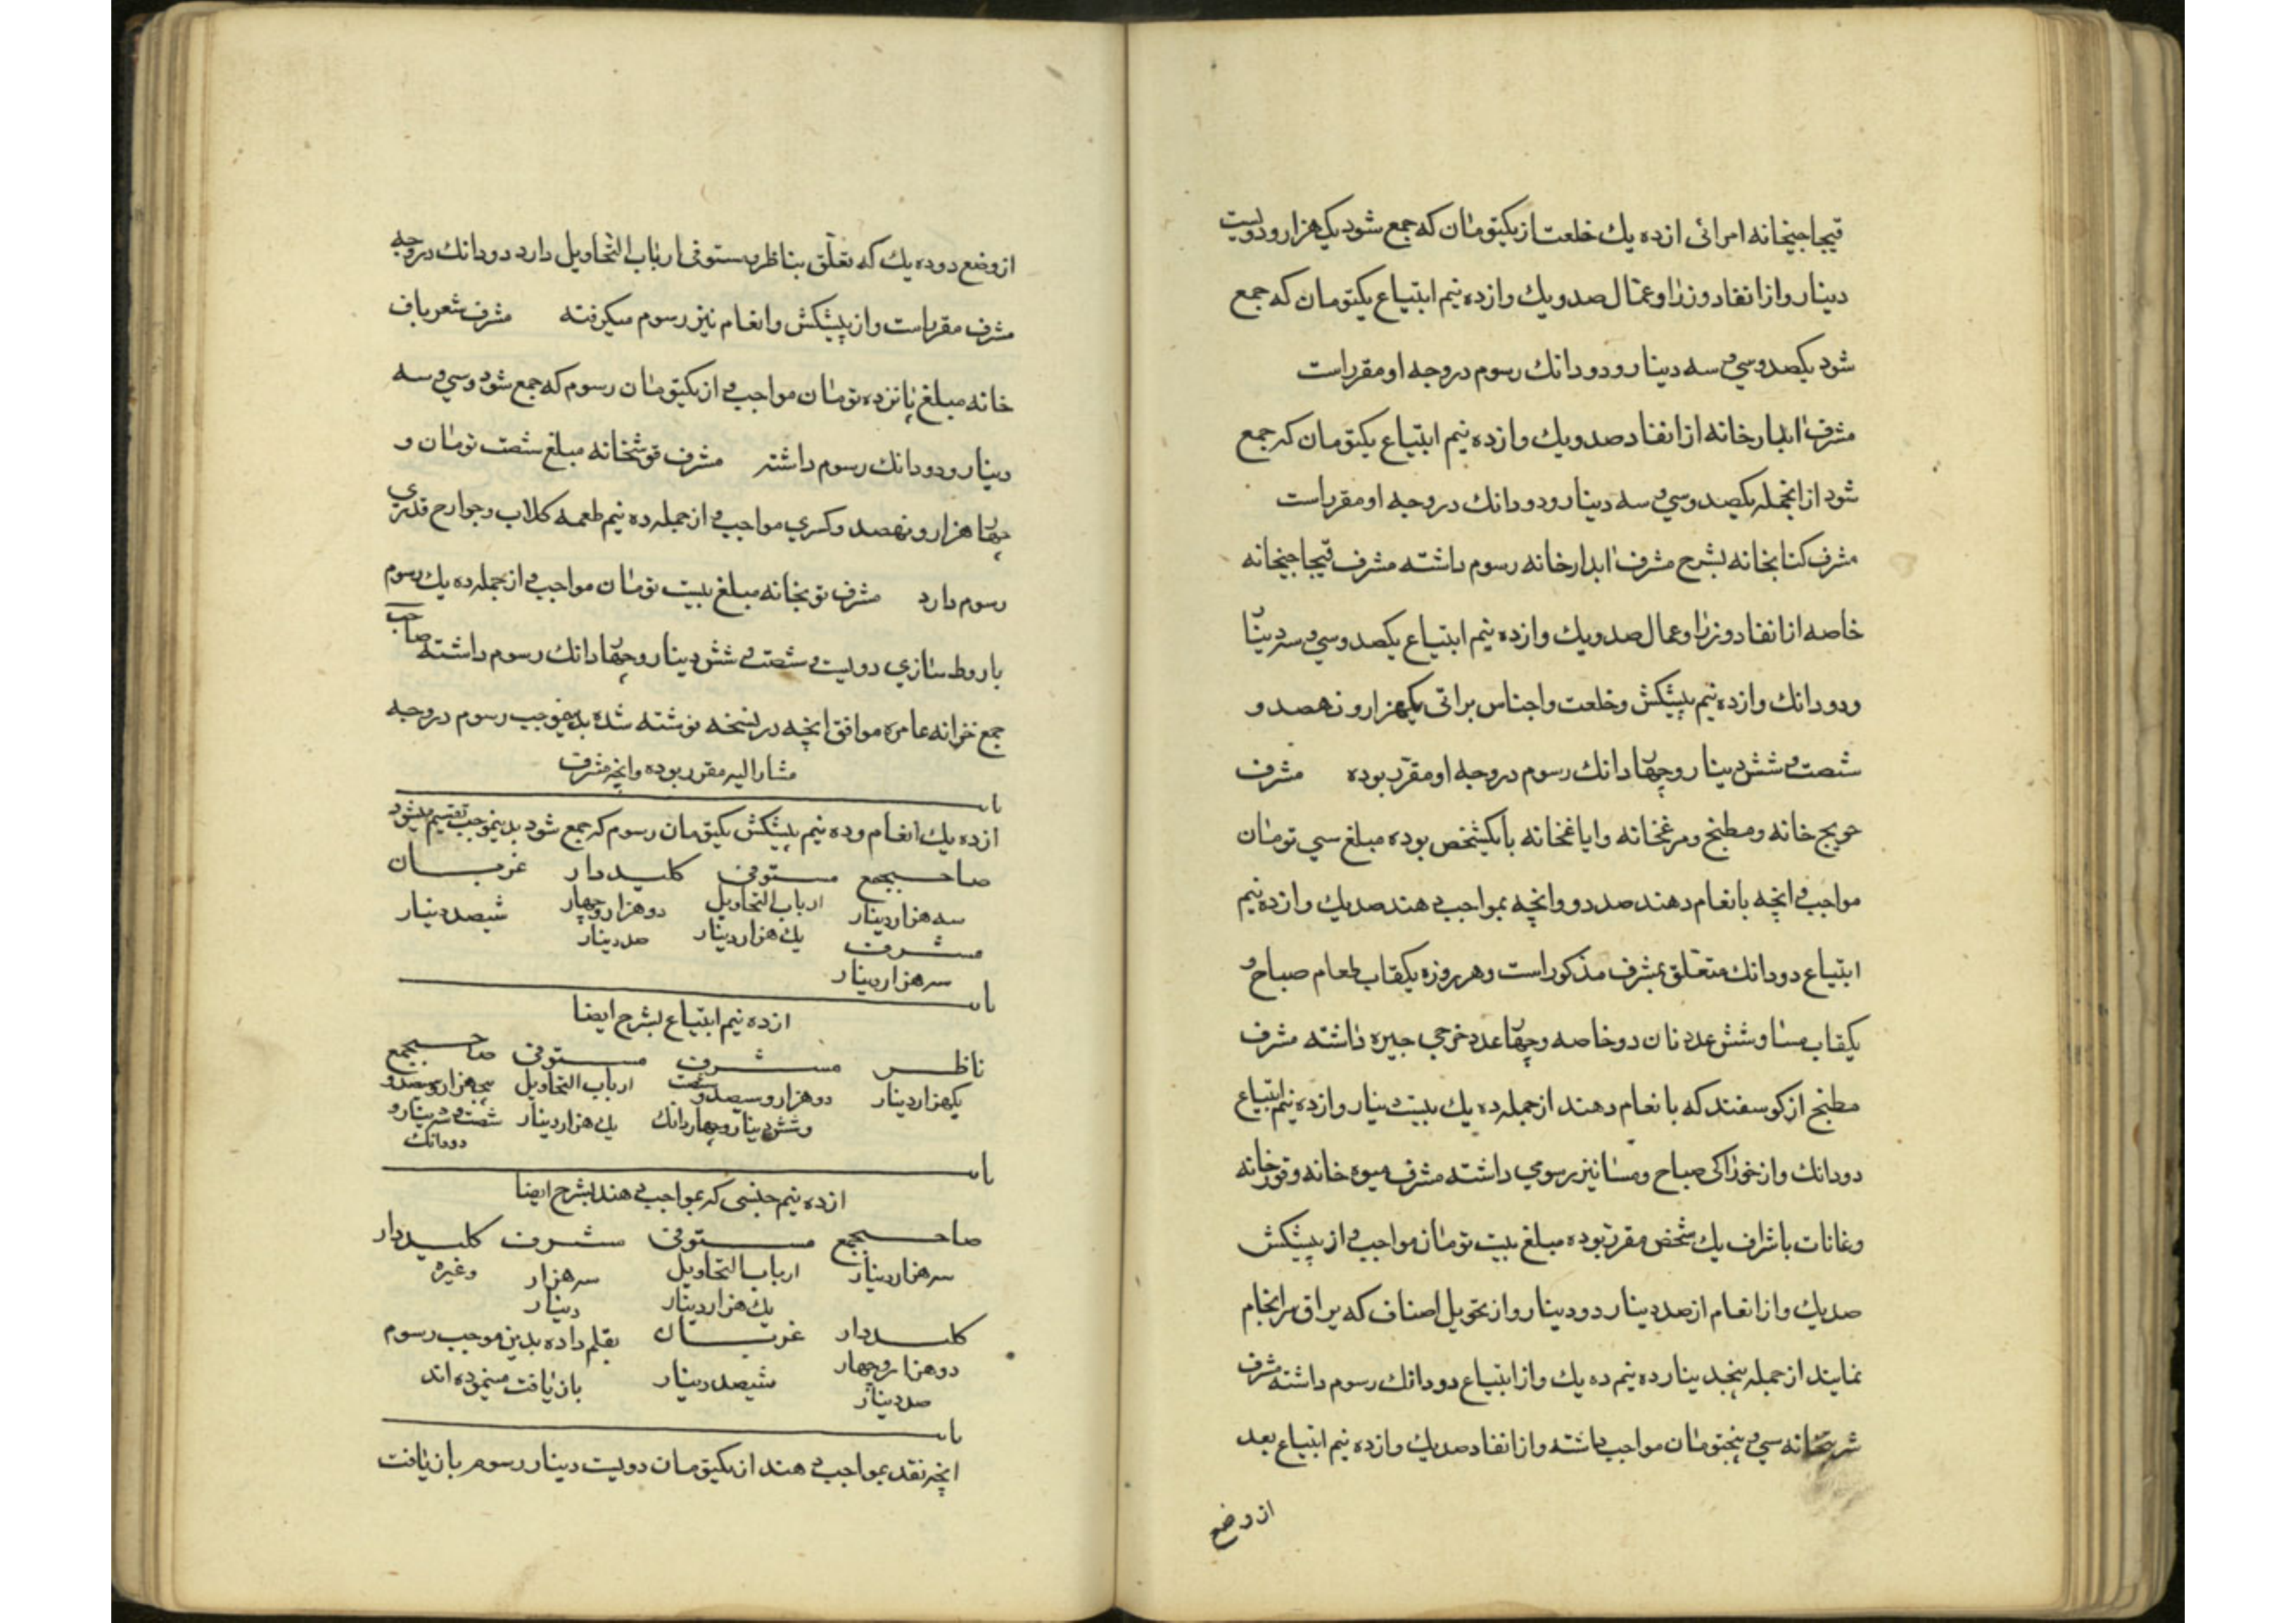 قیچاچیخانه امرائی از ده یك خلعت از یکتومان که جمع شود یک هزار و دویست
دینار و از انفاد وزرا و عمال صد و یك و از ده نیم ابتیاع یکتومان که جمع
شود یکصد و سی و سه دینار و دو دانك رسوم در وجه او مقرر است
مشرف ابدارخانه از انفاد صد و یك و از ده نیم ابتیاع یکتومان که جمع
شود از انجمله یکصد و سی و سه دینار و دو دانك در وجه او مقرر است
مشرف کتابخانه بشرح مشرف ابدارخانه رسوم داشته مشرف قیچاچیخانه
خاصه از انفاد وزرا و عمال صد و یك و از ده نیم ابتیاع یکصد و سی و سه دینار
و دو دانك و از ده نیم پیشکش و خلعت و اجناس براتی یکهزار و نهصد و
شصت و شش دینار و چهار دانك رسوم در وجه او مقرر بوده مشرف
حویج خانه و مطبخ و مرغخانه و ایاغخانه با یکشخص بوده مبلغ سی تومان
مواجب و انچه بانعام دهند صد دو و انچه بمواجب دهند صد یك و از ده نیم
ابتیاع دو دانك متعلق بمشرف مذکور است و هر روزه یکقاب طعام صباح و
یکقاب مسا و شش عدد نان دو خاصه و چهار عدد خرجی جیره داشته مشرف
مطبخ از کوسفند که بانعام دهند از جمله ده یك بیست دینار و از ده نیم ابتیاع
دو دانك و از خوراکی صباح و مسا نیز رسومی داشته مشرف میوه خانه و قورخانه
و غانات باشراف یك شخص مقرر بوده مبلغ بیست تومان مواجب و از پیشکش
صد یك و از انعام از صد دینار دو دینار و از تحویل اصناف که یراق سرانجام
نمایند از جمله پنجدینار ده نیم ده یك و از ابتیاع دو دانك رسوم داشته مشرف
شربتخانه سی و پنجتومان مواجب داشته و از انفاد صد یك و از ده نیم ابتیاع بعد
از وضع
از وضع دوده یك که تعلق بناظر و مستوفی ارباب التحاویل دارد دو دانك در وجه
مشرف مقرر است و از پیشکش و انعام نیز رسوم میکرفته مشرف شعرباف
خانه مبلغ پانزده تومان مواجب و از یکتومان رسوم که جمع شود و سی و سه
دینار و دو دانك رسوم داشته مشرف قوشخانه مبلغ شصت تومان و
چهار هزار و نهصد و کسری مواجب و از جمله ده نیم طعمه کلاب و جوارح قدری
رسوم دارد مشرف توپخانه مبلغ بیست تومان مواجب و از جمله ده یك رسوم
باروط سازی دویست و شصت و شش دینار و چهار دانك رسوم داشته صاحب
جمع خزانه عامره موافق انچه در نسخه نوشته شده بدینموجب رسوم در وجه
مشار الیه مقرر بوده و انچه مشرف
از ده یك انعام و ده نیم پیشکش یکتومان رسوم که جمع شود بدینموجب تقسیم میشود
صاحبجمع مستوفی کلیددار غربان
سه هزار دینار ارباب التحاویل دو هزار و چهار ششصد دینار
یك هزار دینار صد دینار
مشرف
سه هزار دینار
از ده نیم ابتیاع بشرح ایضا
ناظر مشرف مستوفی صاحبجمع
یکهزار دینار دو هزار و سیصد و شصت ارباب التحاویل سیصد و
و شش دینار و چهار دانك یك هزار دینار شصت و دینار و
دو دانك
از ده نیم جنسی که بمواجب دهند بشرح ایضا
صاحبجمع مستوفی مشرف کلیددار
سه هزار دینار ارباب التحاویل سه هزار وغیره
یك هزار دینار دینار
کلیددار غربان بقلم داده بدین موجب رسوم
دو هزار و چهار ششصد دینار بازیافت مینموده اند
صد دینار
انچه نقد بمواجب دهند از یکتومان دویست دینار رسوم بازیافت